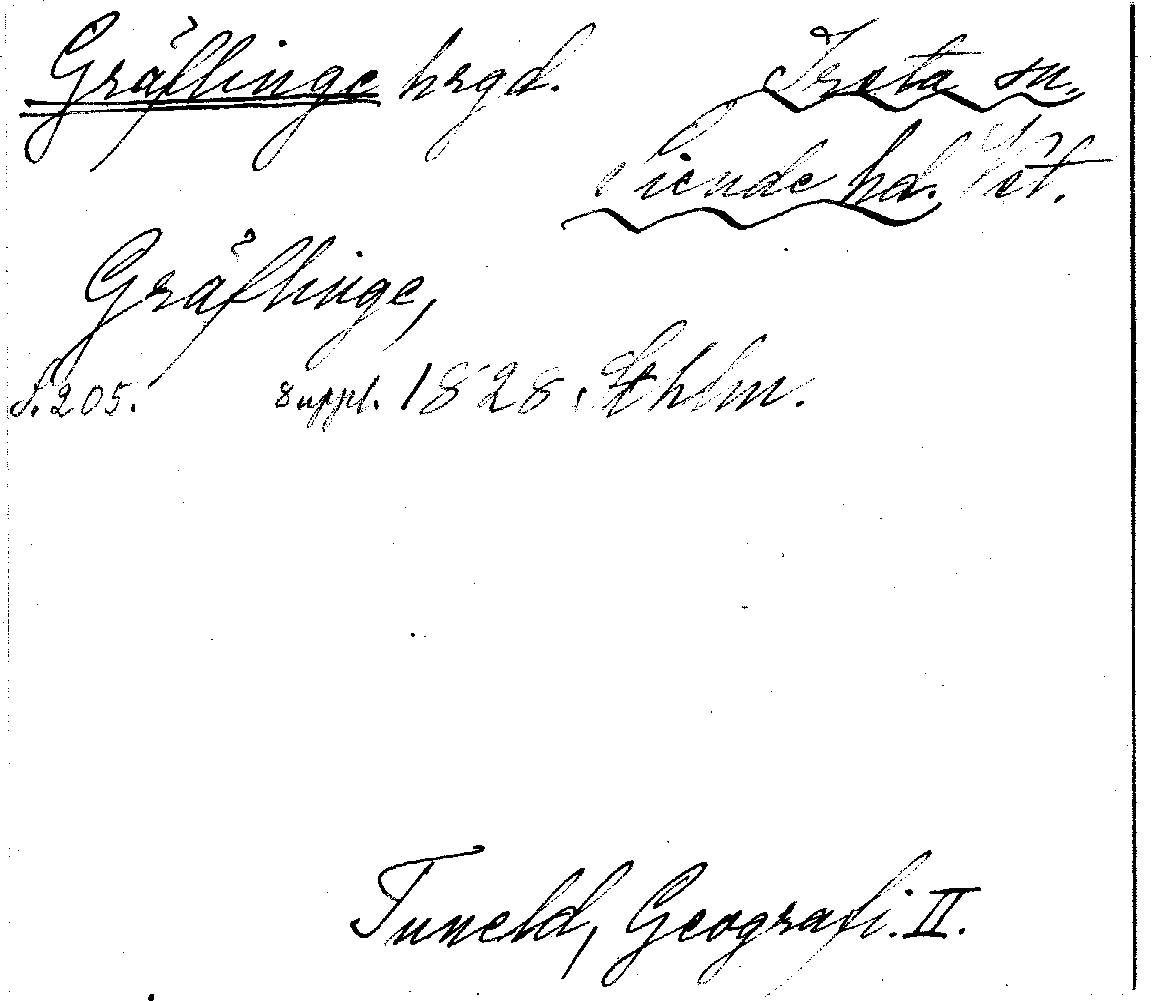 Gräflinge hrgd. Irsta sn.
Siende hd. Vst.
Gräflinge,
S. 205. suppl. 1828, Sthlm.
Tuneld, Geografi. II.